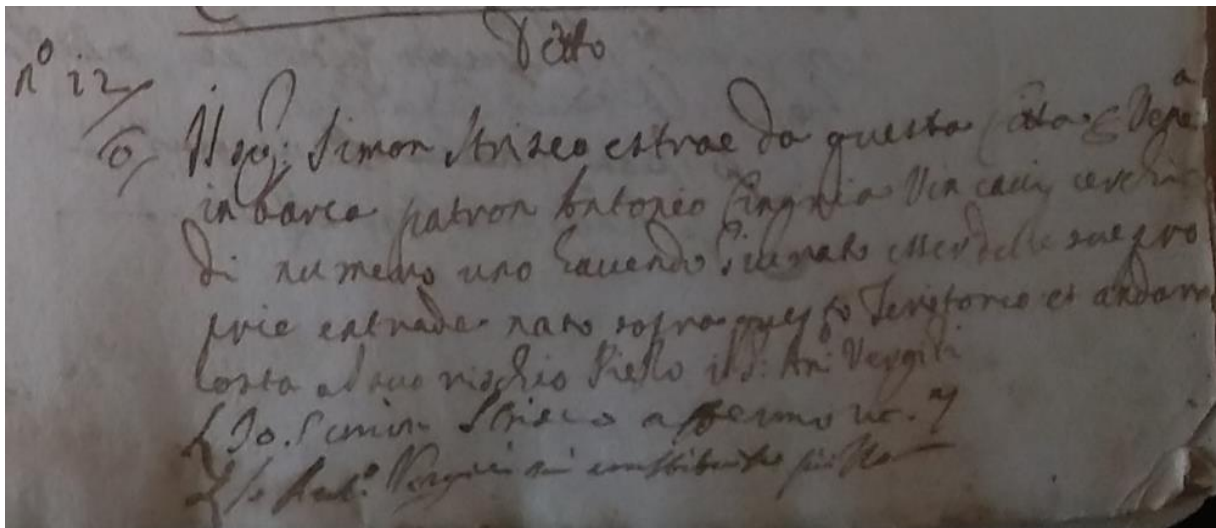 Ditto
n.o 12
Il sig: Simon Striseo estrae da questa Città p Venea
in barca patron Antonio Vin
di numero uno havendo giurato esser delle sue pro
prie entrade nato sopra questo Teritorio et andara
costa al suo rischio Piello il s: An: Vergini
Io Simon Striseo affermo ut.
Io Ant.o Vergini mi constituisco piello